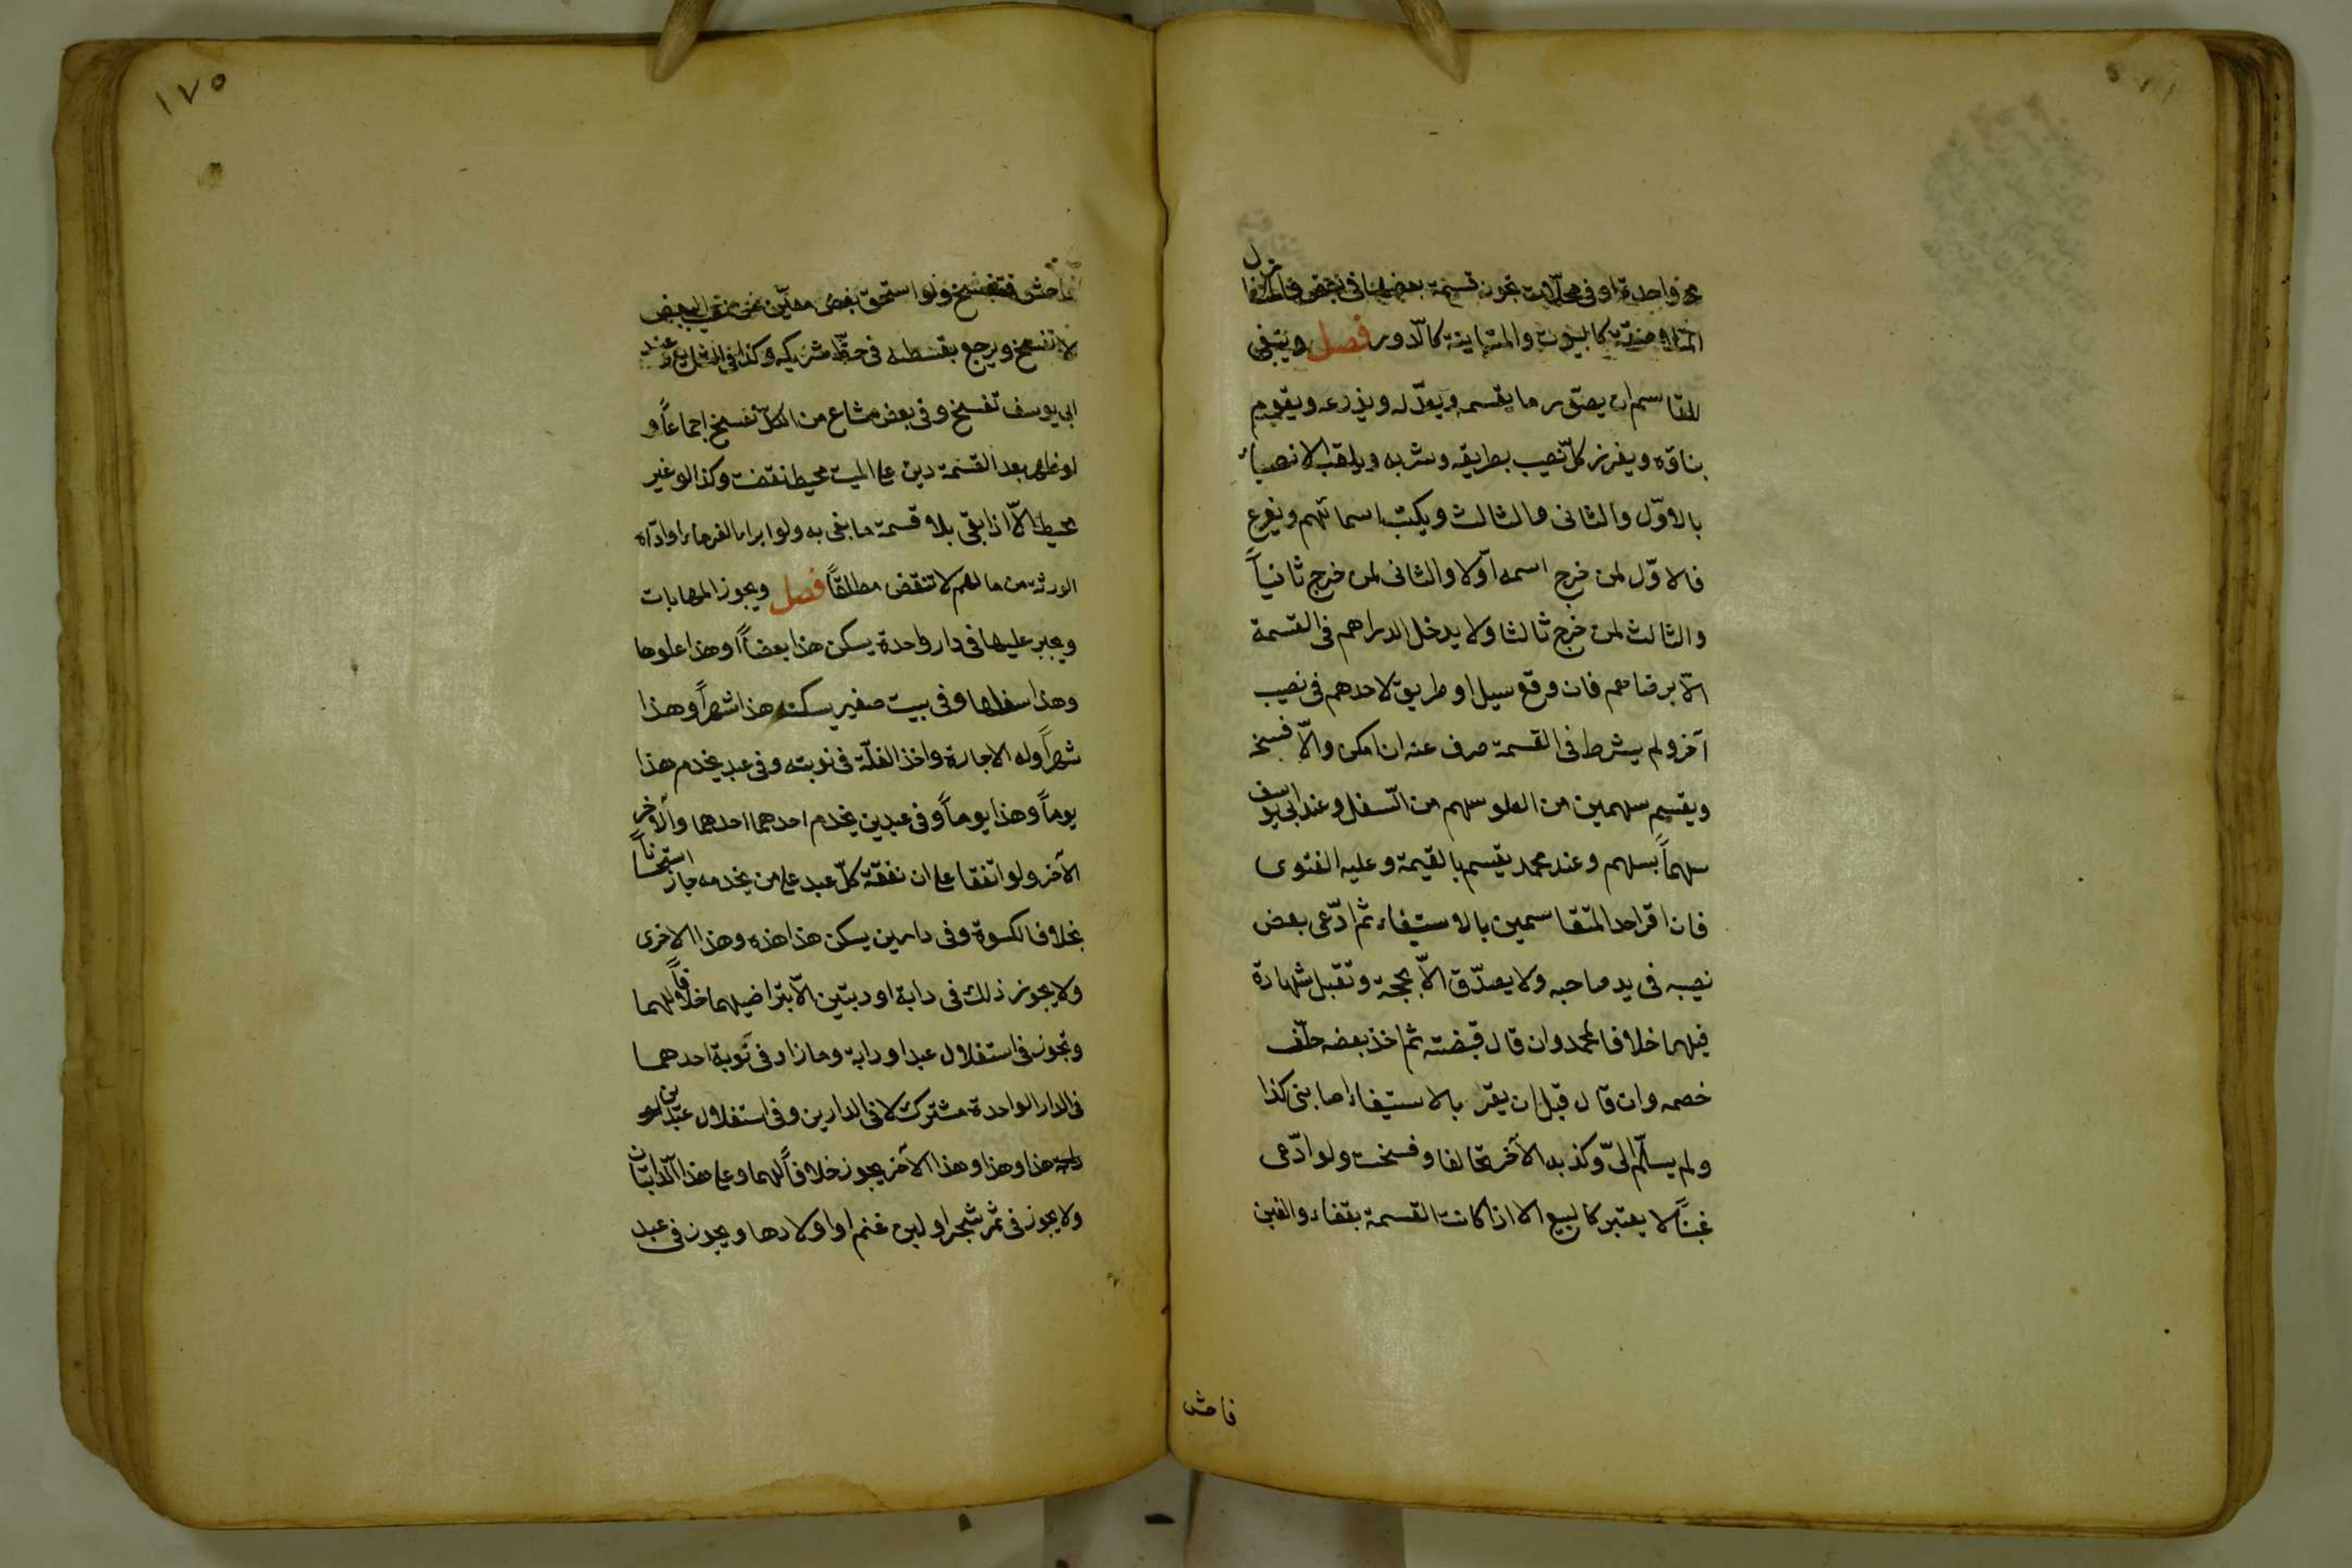 محلة واحدة او في محلات تجوز قسمة بعضها في بعض والمنازل
المتلاصقة كالبيوت والمتباينة كالدور فصل وينبغي
للقاسم ان يصوّر ما يقسمه ويعدّله ويذرعه ويقوم
بناؤه ويفرز كلّ نصيب بطريقه وشربه ويلقب الانصباء
بالاوّل والثاني والثالث ويكتب اسمائهم ويقرع
فالاوّل لمن خرج اسمه اوّلا والثاني لمن خرج ثانياً
والثالث لمن خرج ثالثا ولا يدخل الدراهم في القسمة
الّا برضاهم فان وقع سيل او طريق لاحدهم في نصيب
آخر ولم يشرط في القسمة صرف عنه ان امكن والّا فسخة
ويقسم سهمين من العلو سهم من السّفل وعند ابي يوسف
سهماً بسهم وعند محمد يقسم بالقيمة وعليه الفتوى
فان اقر احد المتقاسمين بالاستيفاء ثم ادّعى بعض
نصيبه في يد صاحبه ولا يصدّق الّا بحجة وتقبل شهادة
فيهما خلافا لمحمد وان قال قبضته ثم اخذ بعضه حلّف
خصمه وان قال قبل ان يقر بالاستيفاء اصابني كذا
ولم يسلّم الىّ وكذبه الآخر تحالفا وفسخت ولو ادّعى
غبناً لا يعتبر كالبيع الا اذا كانت القسمة بقضاء والغبن
فاحش
١٧٥
فاحش فتفسخ ولو استحق بعض معيّن من نصيب البعض
لا تفسخ ويرجع بقسطه في حظّ شريكه وكذا في الشايع وعند
ابي يوسف تفسخ وفي بعض مشاع من الكلّ تفسخ اجماعاً و
لو ظهر بعد القسمة دين على الميت محيط نقضت وكذا لو غير
محيط الّا اذا بقى بلا قسمة ما بقى به ولو ابراء الغرماء او ادّاه
الورثة من مالهم لا تنقض مطلقاً فصل ويجوز المهايات
ويجبر عليها في دار واحدة يسكن هذا بعضاً او هذا علوها
وهذا سفلها وفي بيت صغير يسكنه هذا شهراً وهذا
شهراً وله الاجارة واخذ الغلّة في نوبته وفي عبد يخدم هذا
يوماً وهذا يوماً وفي عبدين يخدم احدهما احدهما والآخر
الآخر ولو اتفقا على ان نفقة كلّ عبد على من يخدمه جاز استحساناً
بخلاف الكسوة وفي دارين يسكن هذا هذه وهذا الاخرى
ولا يجوز ذلك في دابة او دبتين الّا بتراضيهما خلافاً لهما
وتجوز في استغلال عبد او دابة وما زاد في نوبة احدهما
في الدار الواحدة مشترك لا في الدارين وفي استغلال عبدين
هذا وهذا وهذا الآخر يجوز خلافاً لهما وعلى هذا الدابتان
ولا يجوز في ثمر شجر او لبن غنم او اولادها ويجوز في عبد